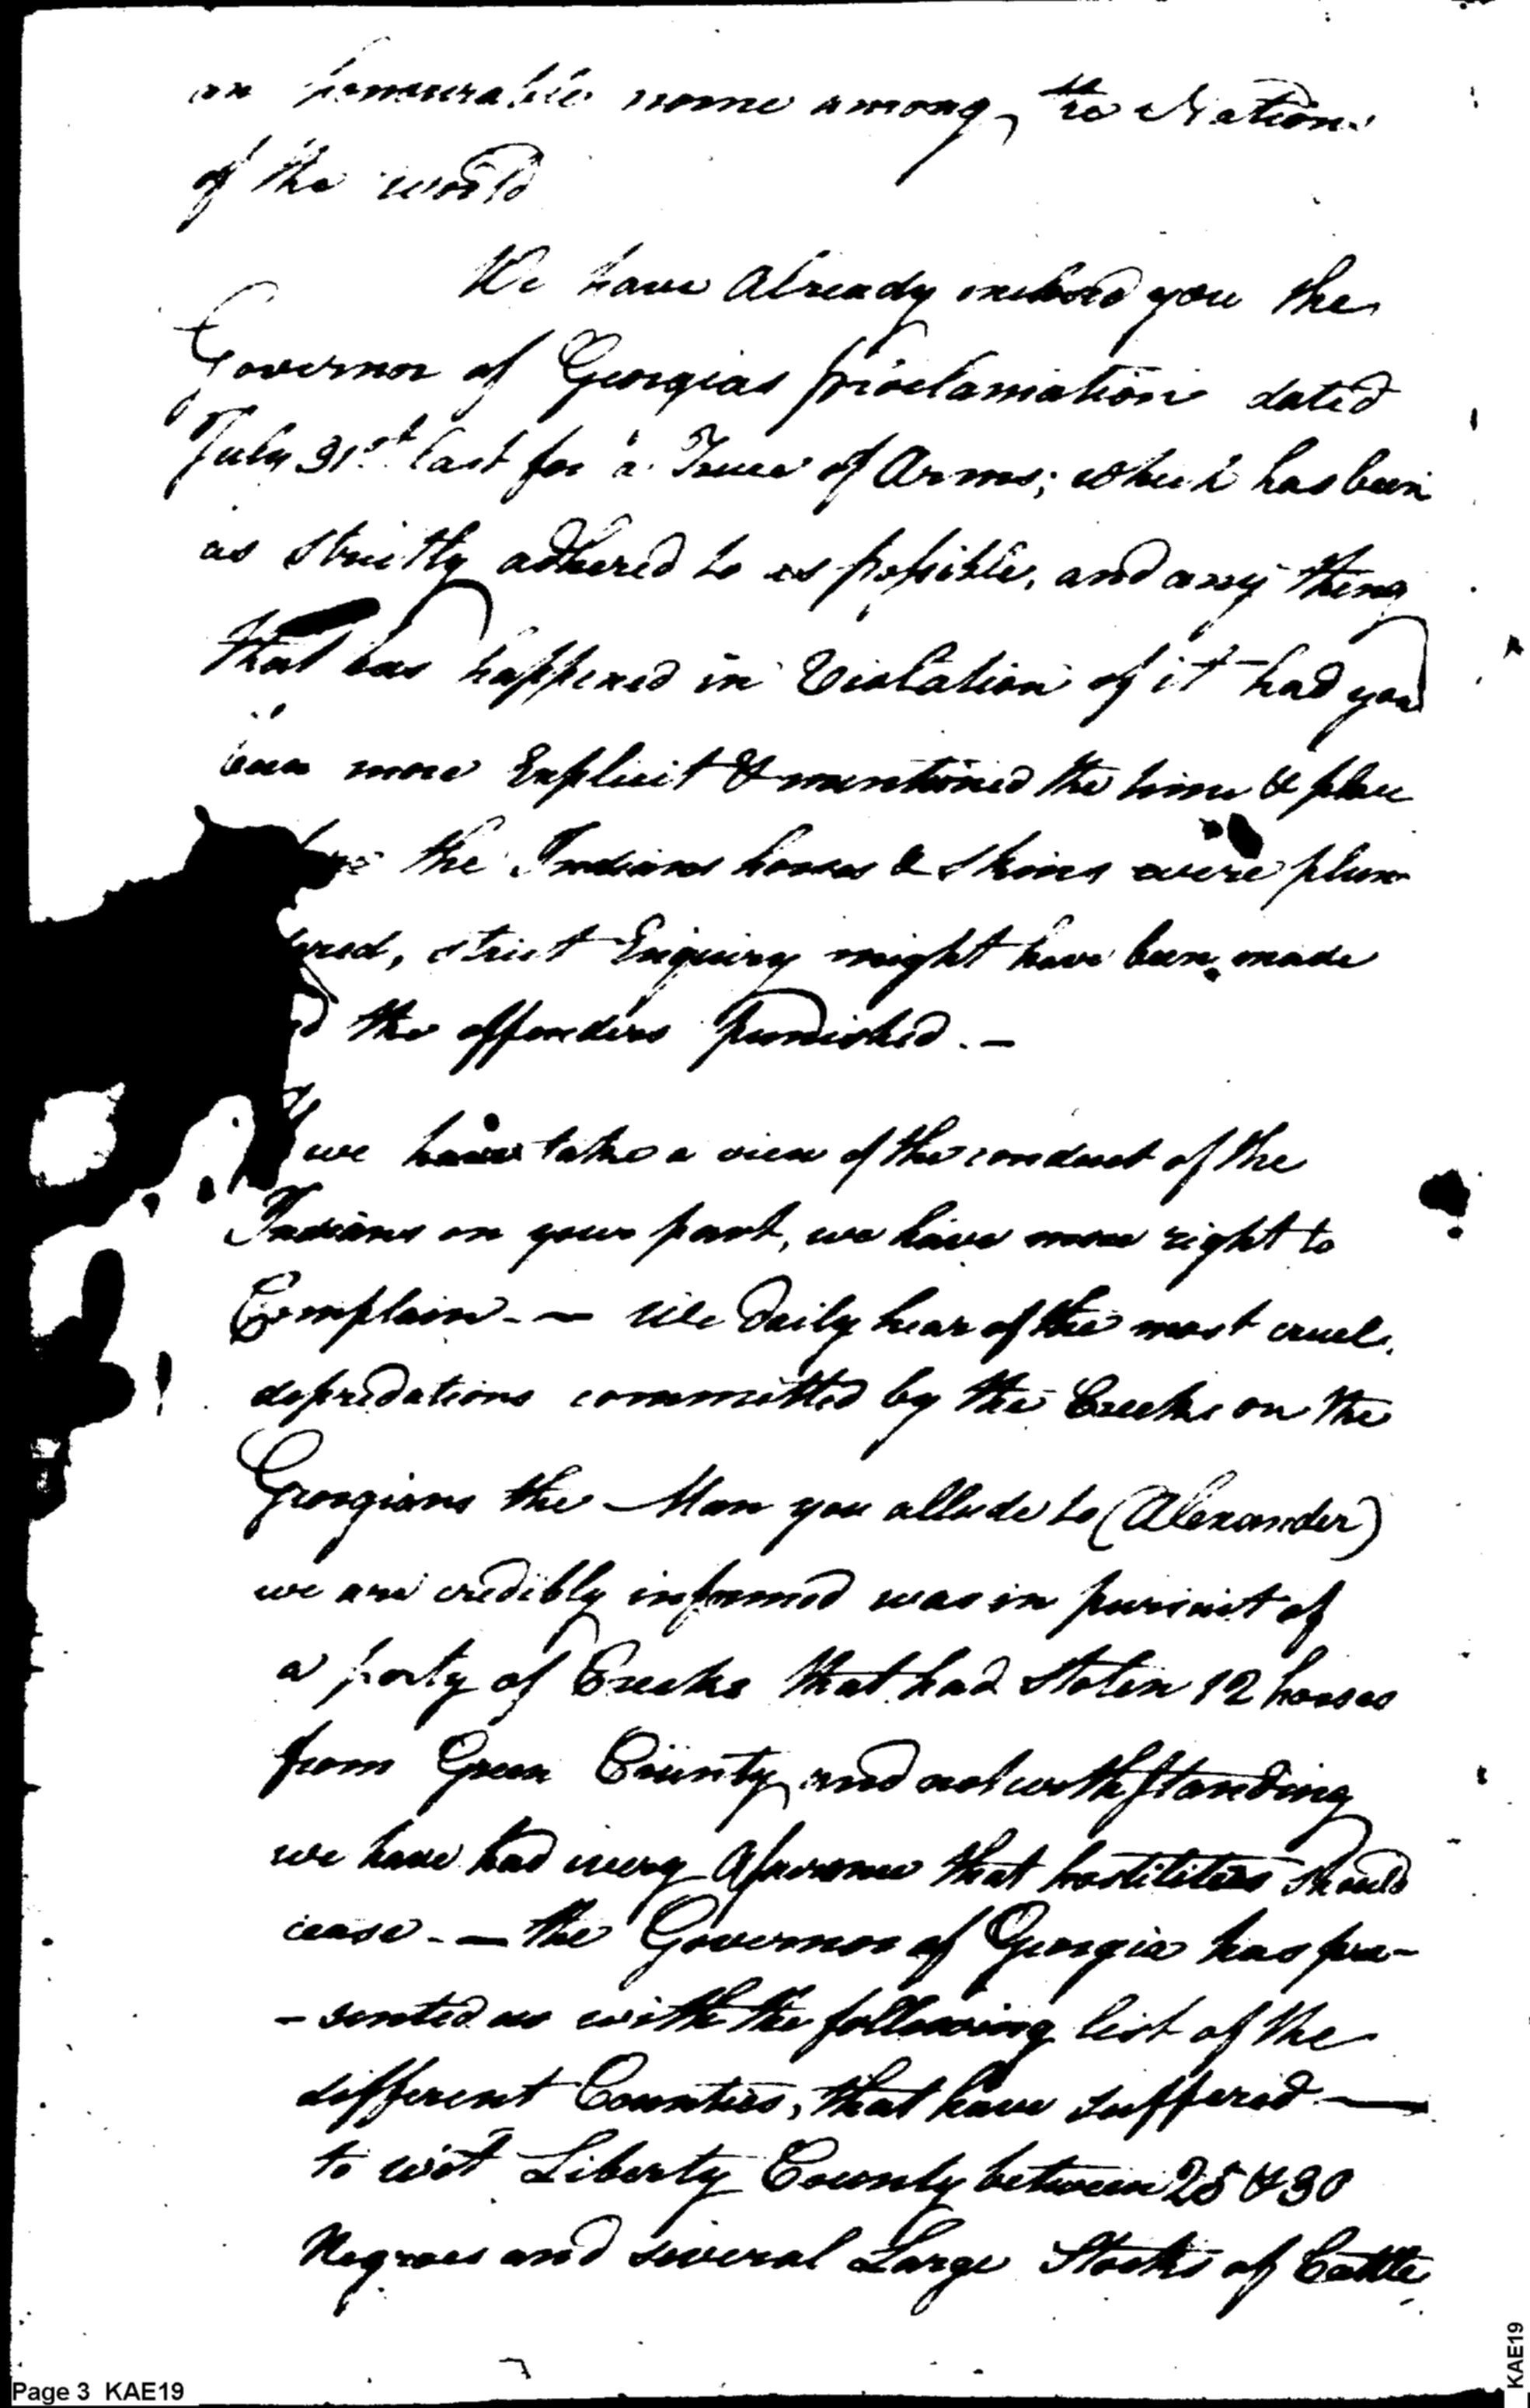 an honourable name among the Nations
of the world
We have Already inclosed you the
Governor of Georgias proclamation dated
July 31st. last for a Truce of Arms; which has been
as strictly adhered to as possible, and any thing
that has happened in Violation of it had you
been more Explicit & mentioned the time & place
the Indians horses & Skins were plun
dered, strict Enquiry might have been made
the offenders punished. —
we have take a view of the conduct of the
Indians on your part, we have more right to
Complain. — We daily hear of the most cruel
depredations committed by the Creeks on the
Georgians the Man you allude to (Alexander)
we are credibly informed was in pursuit of
a party of Creeks that had Stolen 12 horses
from Green County, and notwithstanding
we have had every Assurance that hostilities should
cease. — the Governor of Georgia has pre-
-sented us with the following list of the
different Counties, that have suffered —
to wit Liberty County between 25 & 30
Negroes and several Large Stocks of Cattle,
Page 3 KAE19
KAE19